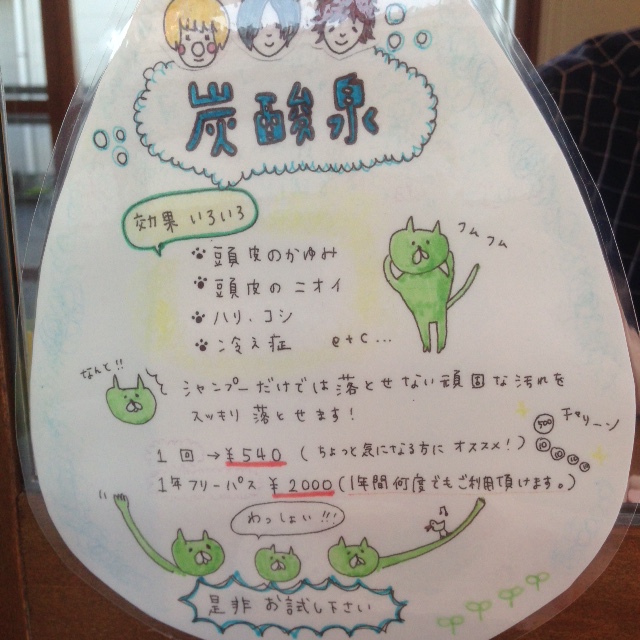 炭酸泉
効果 いろいろ
頭皮のかゆみ
頭皮のニオイ
ハリ、コシ
冷え症 etc...
フムフム
なんと!!
シャンプーだけでは落とせない頑固な汚れを
スッキリ落とせます!
チャリーン
500
1回→¥540 (ちょっと気になる方にオススメ!)
1年フリーパス ¥2000 (1年間何度でもご利用頂けます。)
わっしょい!!!
是非お試し下さい